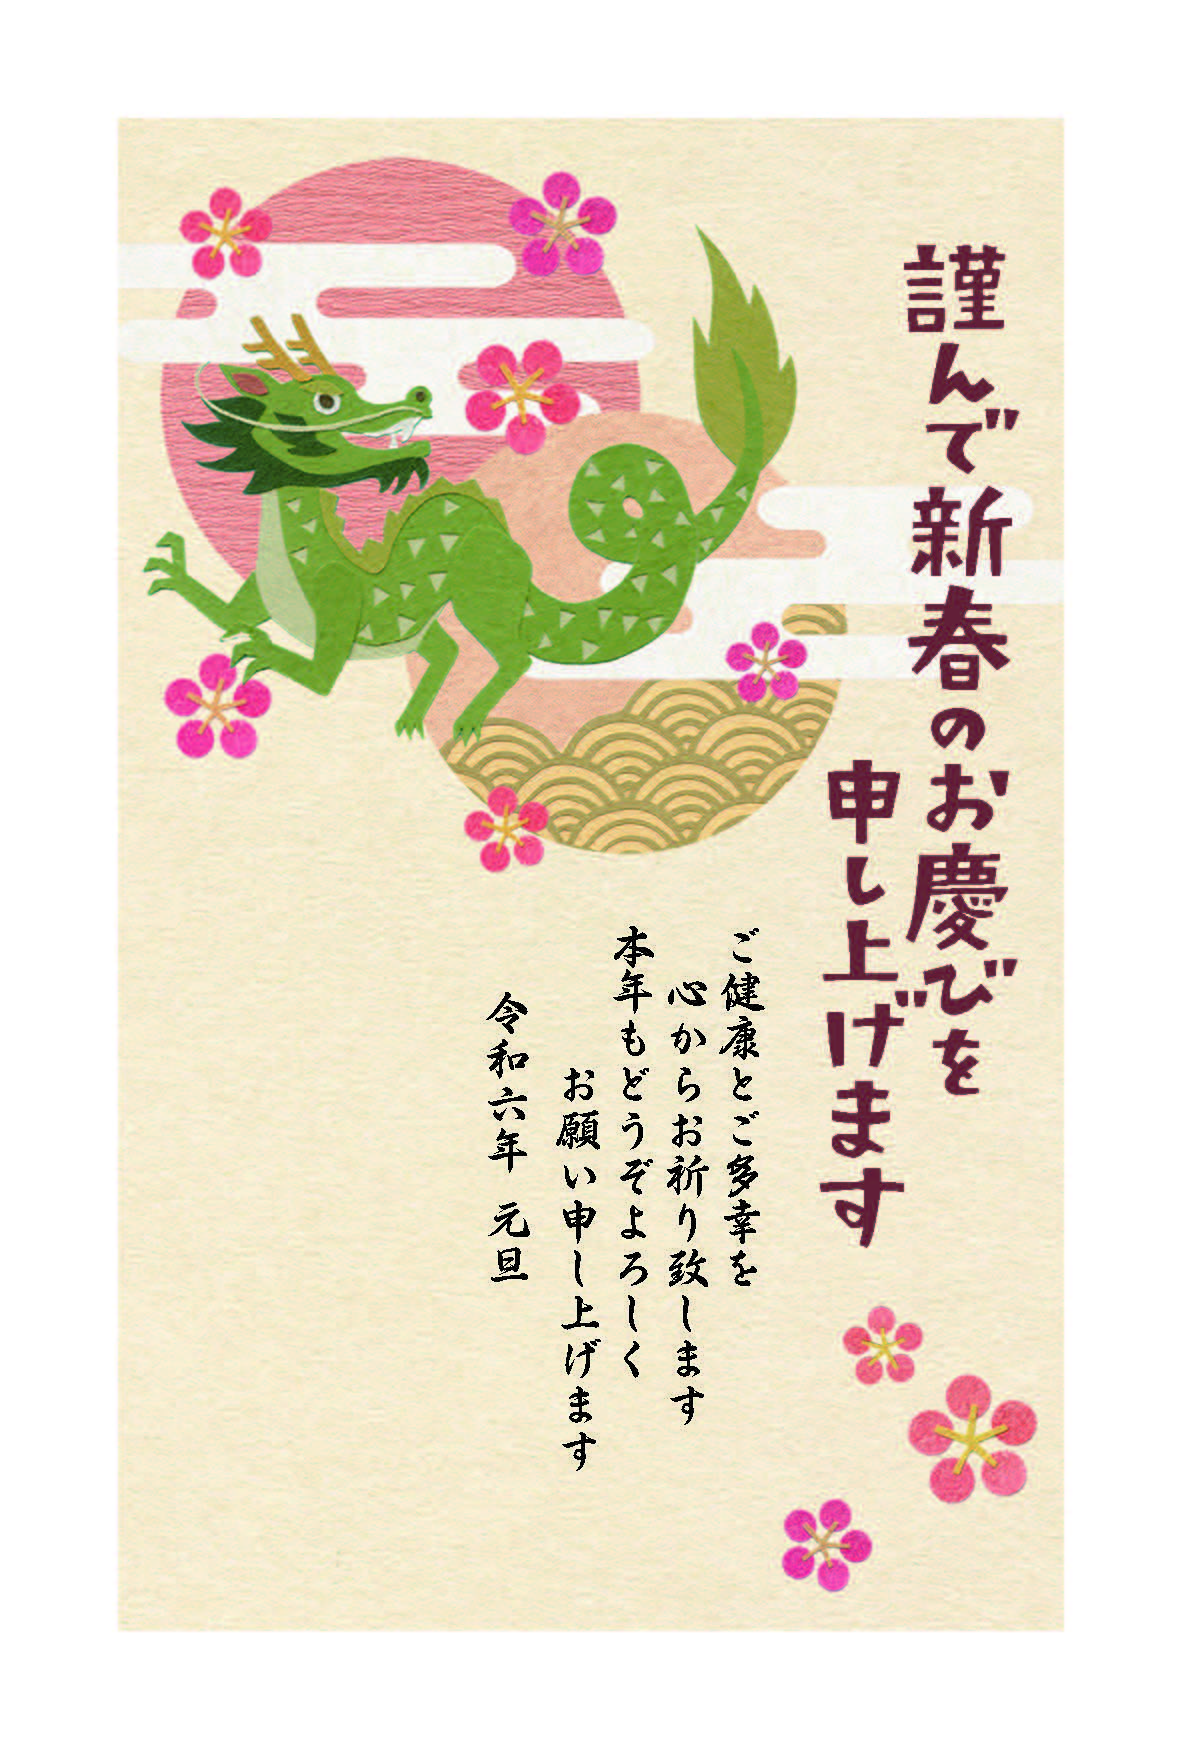 謹んで新春のお慶びを
申し上げます
ご健康とご多幸を
心からお祈り致します
本年もどうぞよろしく
お願い申し上げます
令和六年 元旦